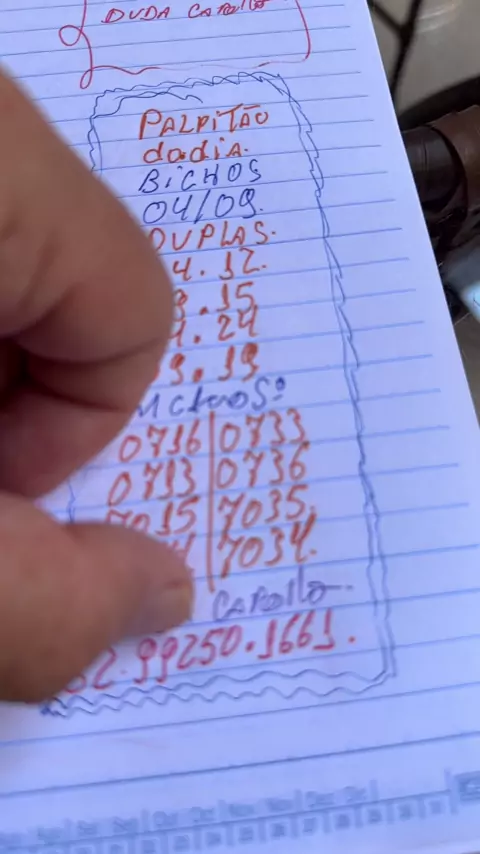 DUDA CAROLLO
PALPITÃO
dodiA.
BiCHOS
04/09.
DUPLAS.
4.12.
.15
.24
9.19
MCtenoSº
0716 0733
0713 0736
7015 7035.
7034.
CAROllo.
2.99250.1661.